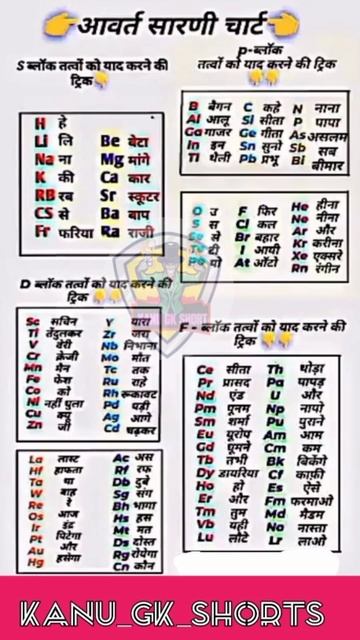 👉आवर्त सारणी चार्ट👈
S ब्लॉक तत्वों को याद करने की
ट्रिक👇
H हे
Li लि Be बेटा
Na ना Mg मांगे
K की Ca कार
RB रब Sr स्कूटर
CS से Ba बाप
Fr फरिया Ra राजी
P-ब्लॉक
तत्वों को याद करने की ट्रिक
👇👇
B बैगन C कहे N नाना
Al आलू Si सीता P पापा
Ga गाजर Ge गीता As असलम
In इन Sn सुनो Sb सब
Tl थैली Pb प्रभू Bi बीमार
O उ F फिर He हीना
S स Cl कल Ne नीना
से Br बहार Ar और
Te टी I आयी Kr करीना
Po पो At ऑटो Xe एक्सरे
Rn रंगीन
D ब्लॉक तत्वों को याद करने की
ट्रिक 👇👇
Sc सचिन Y यारा
Ti तेंदुलकर Zr जरा
V वेरी Nb निभाना
Cr क्रेजी Mo मौत
Mn मैन Tc तक
Fe फेश Ru राहे
Co को Rh रूकावट
Ni नहीं धुला Pd पड़ी
Cu क्यूं Ag आगे
Zn जी Cd चढ़कर
La लास्ट Ac अस
Hf हाफता Rf रफ
Ta था Db दुबे
W बाह Sg संग
Re रे Bh भागा
Os आज Hs हस
Ir इंट Mt मत
Pt पिटेगा Ds दोस्त
Au और Rg रोयेगा
Hg हंसेगा Cn कौन
F - ब्लॉक तत्वों को याद करने की
ट्रिक 👇👇
Ce सीता Th थोड़ा
Pr प्रासद Pa पापड़
Nd एंड U और
Pm पूनम Np नापो
Sm शर्मा Pu पुराने
Eu यूरोप Am आम
Gd घूमने Cm कम
Tb तभी Bk बिकेंगे
Dy डायरिया Cf काफ़ी
Ho हो Es ऐसे
Er और Fm फरमाओ
Tm तुम Md मैडम
Yb यही No नास्ता
Lu लौटे Lr लाओ
KANU GK SHORT
KANU_GK_SHORTS